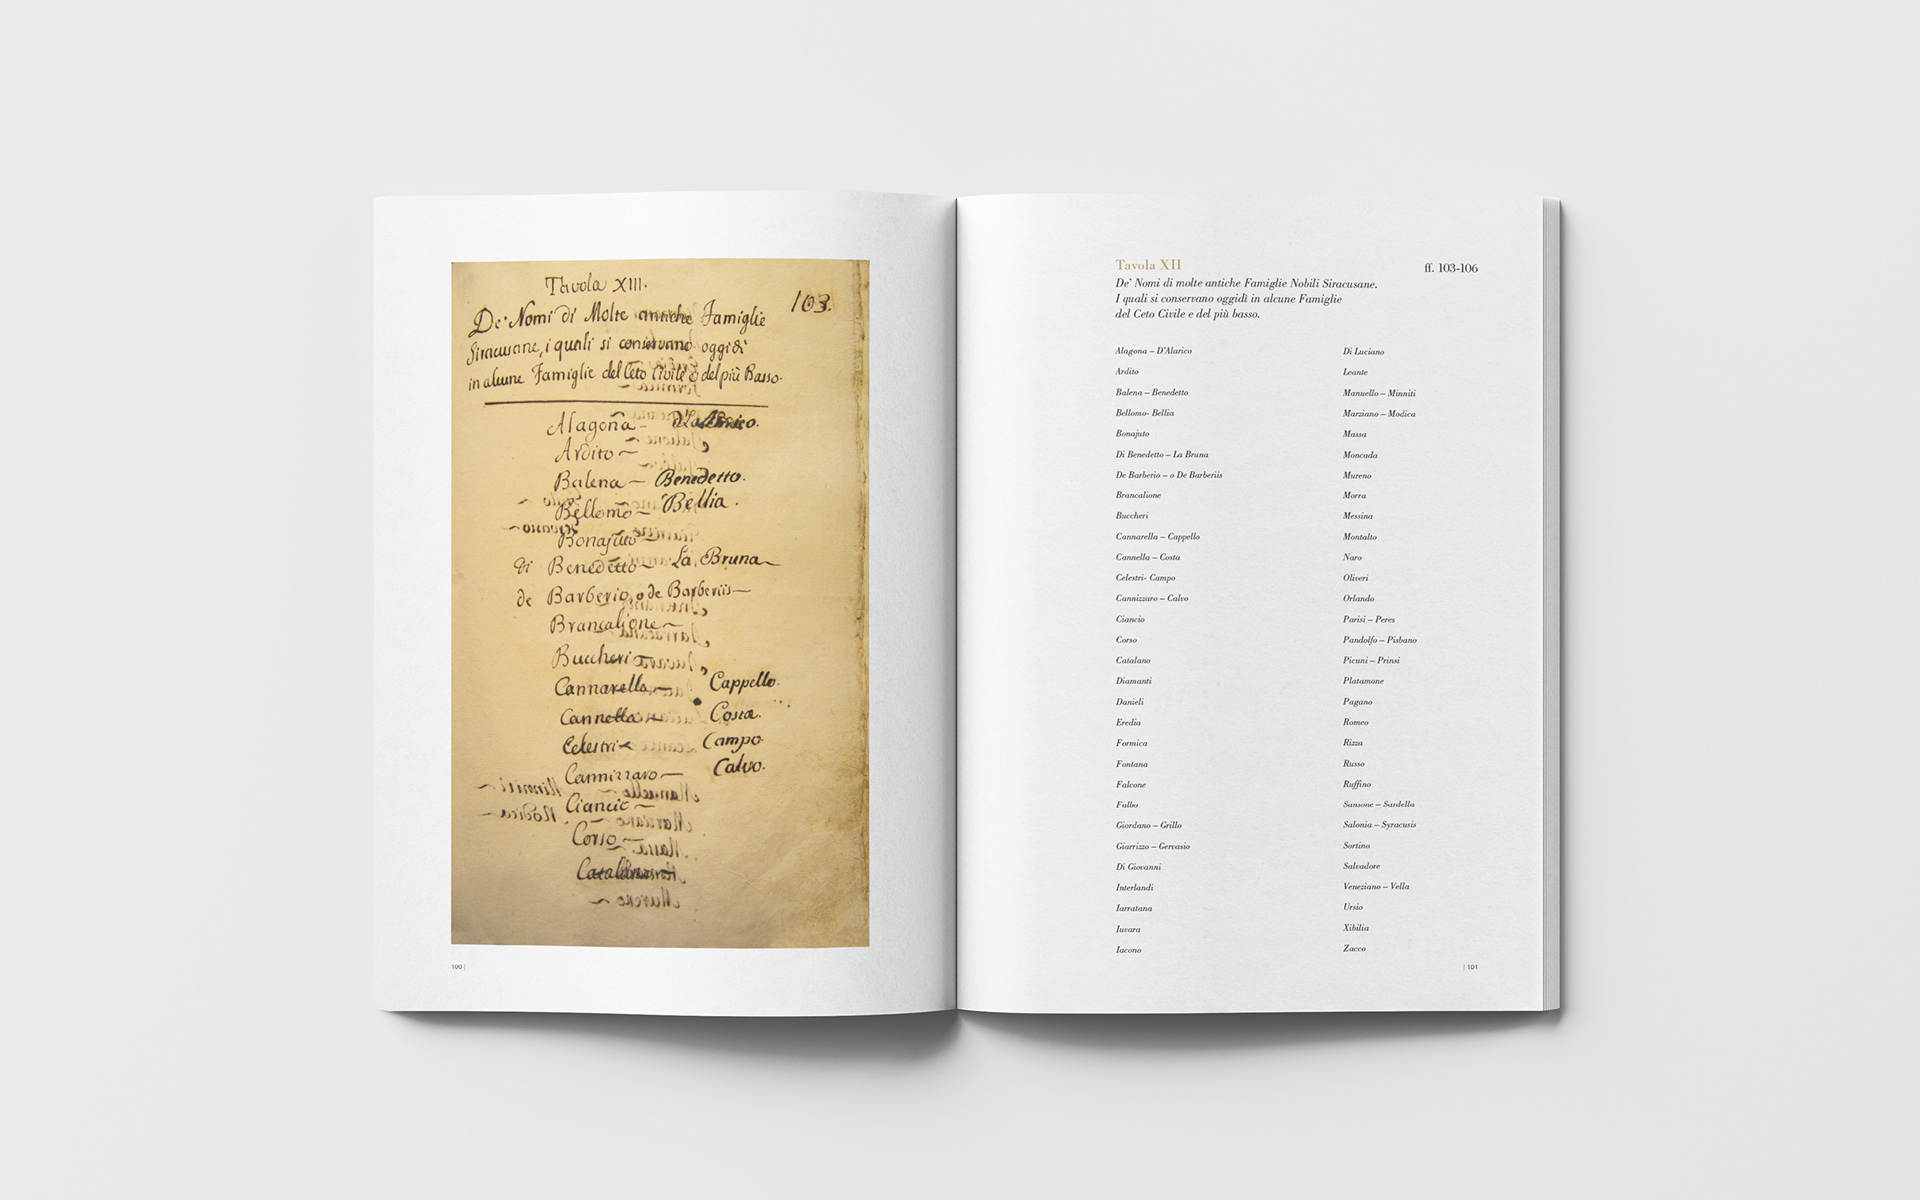 Tavola XIII.
103.
De' Nomi di Molte antiche Famiglie
Siracusane, i quali si conservano oggidì
in alcune Famiglie del Ceto Civile e del più Basso.
Alagona –
Ardito ~
Balena – Benedetto.
Bellomo – Bellia.
Bonajuto
di Benedetto – La Bruna ~
de Barberio, o de Barberiis –
Brancalione ~
Buccheri
Cannarella – Cappello.
Cannella – Costa.
Celestri – Campo.
Cannizzaro – Calvo.
Ciancio ~
Corso ~
Catalano
100 |
Tavola XII
ff. 103-106
De' Nomi di molte antiche Famiglie Nobili Siracusane.
I quali si conservano oggidì in alcune Famiglie
del Ceto Civile e del più basso.
Alagona – D'Alarico
Ardito
Balena – Benedetto
Bellomo- Bellia
Bonajuto
Di Benedetto – La Bruna
De Barberio – o De Barberiis
Brancalione
Buccheri
Cannarella – Cappello
Cannella – Costa
Celestri- Campo
Cannizzaro – Calvo
Ciancio
Corso
Catalano
Diamanti
Danieli
Eredia
Formica
Fontana
Falcone
Falbo
Giordano – Grillo
Giarrizzo – Gervasio
Di Giovanni
Interlandi
Iarratana
Iuvara
Iacono
Di Luciano
Leante
Manuello – Minniti
Marziano – Modica
Massa
Moncada
Mureno
Morra
Messina
Montalto
Naro
Oliveri
Orlando
Parisi – Peres
Pandolfo – Pisbano
Picuni – Prinsi
Platamone
Pagano
Romeo
Rizza
Russo
Ruffino
Sansone – Sardella
Salonia – Syracusis
Sortino
Salvadore
Veneziano – Vella
Ursio
Xibilia
Zacco
| 101